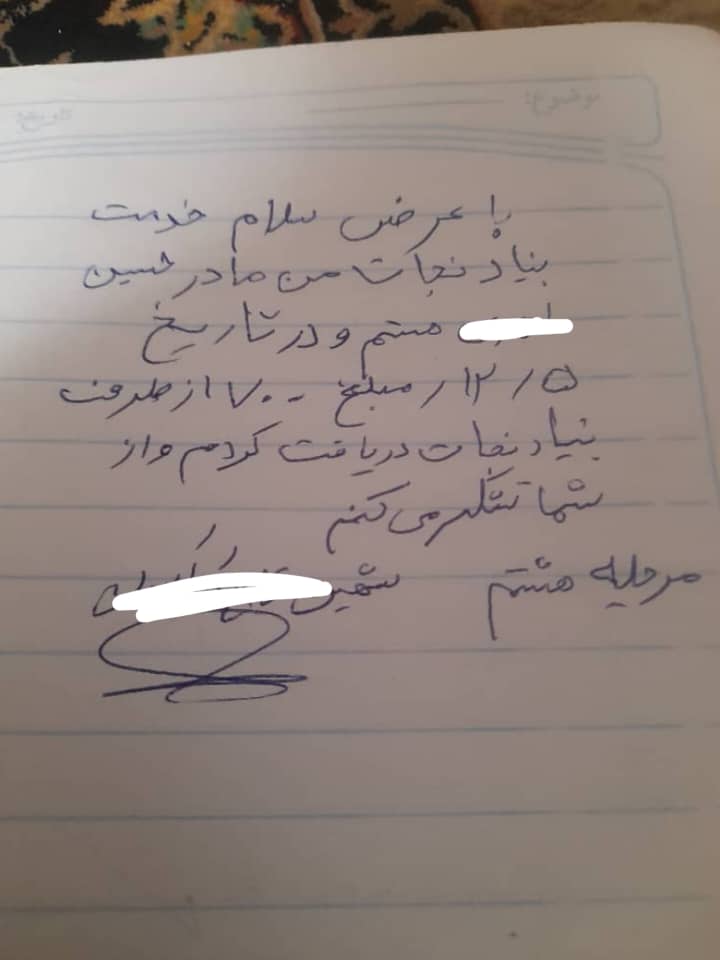 موضوع: تاریخ:
با عرض سلام خدمت
بنیاد نجات من مادر حسین
هستم و در تاریخ
۱۲/۵ / مبلغ ۱۷۰۰ از طرف
بنیاد نجات دریافت کردم و از
شما تشکر می کنم
مرحله هشتم